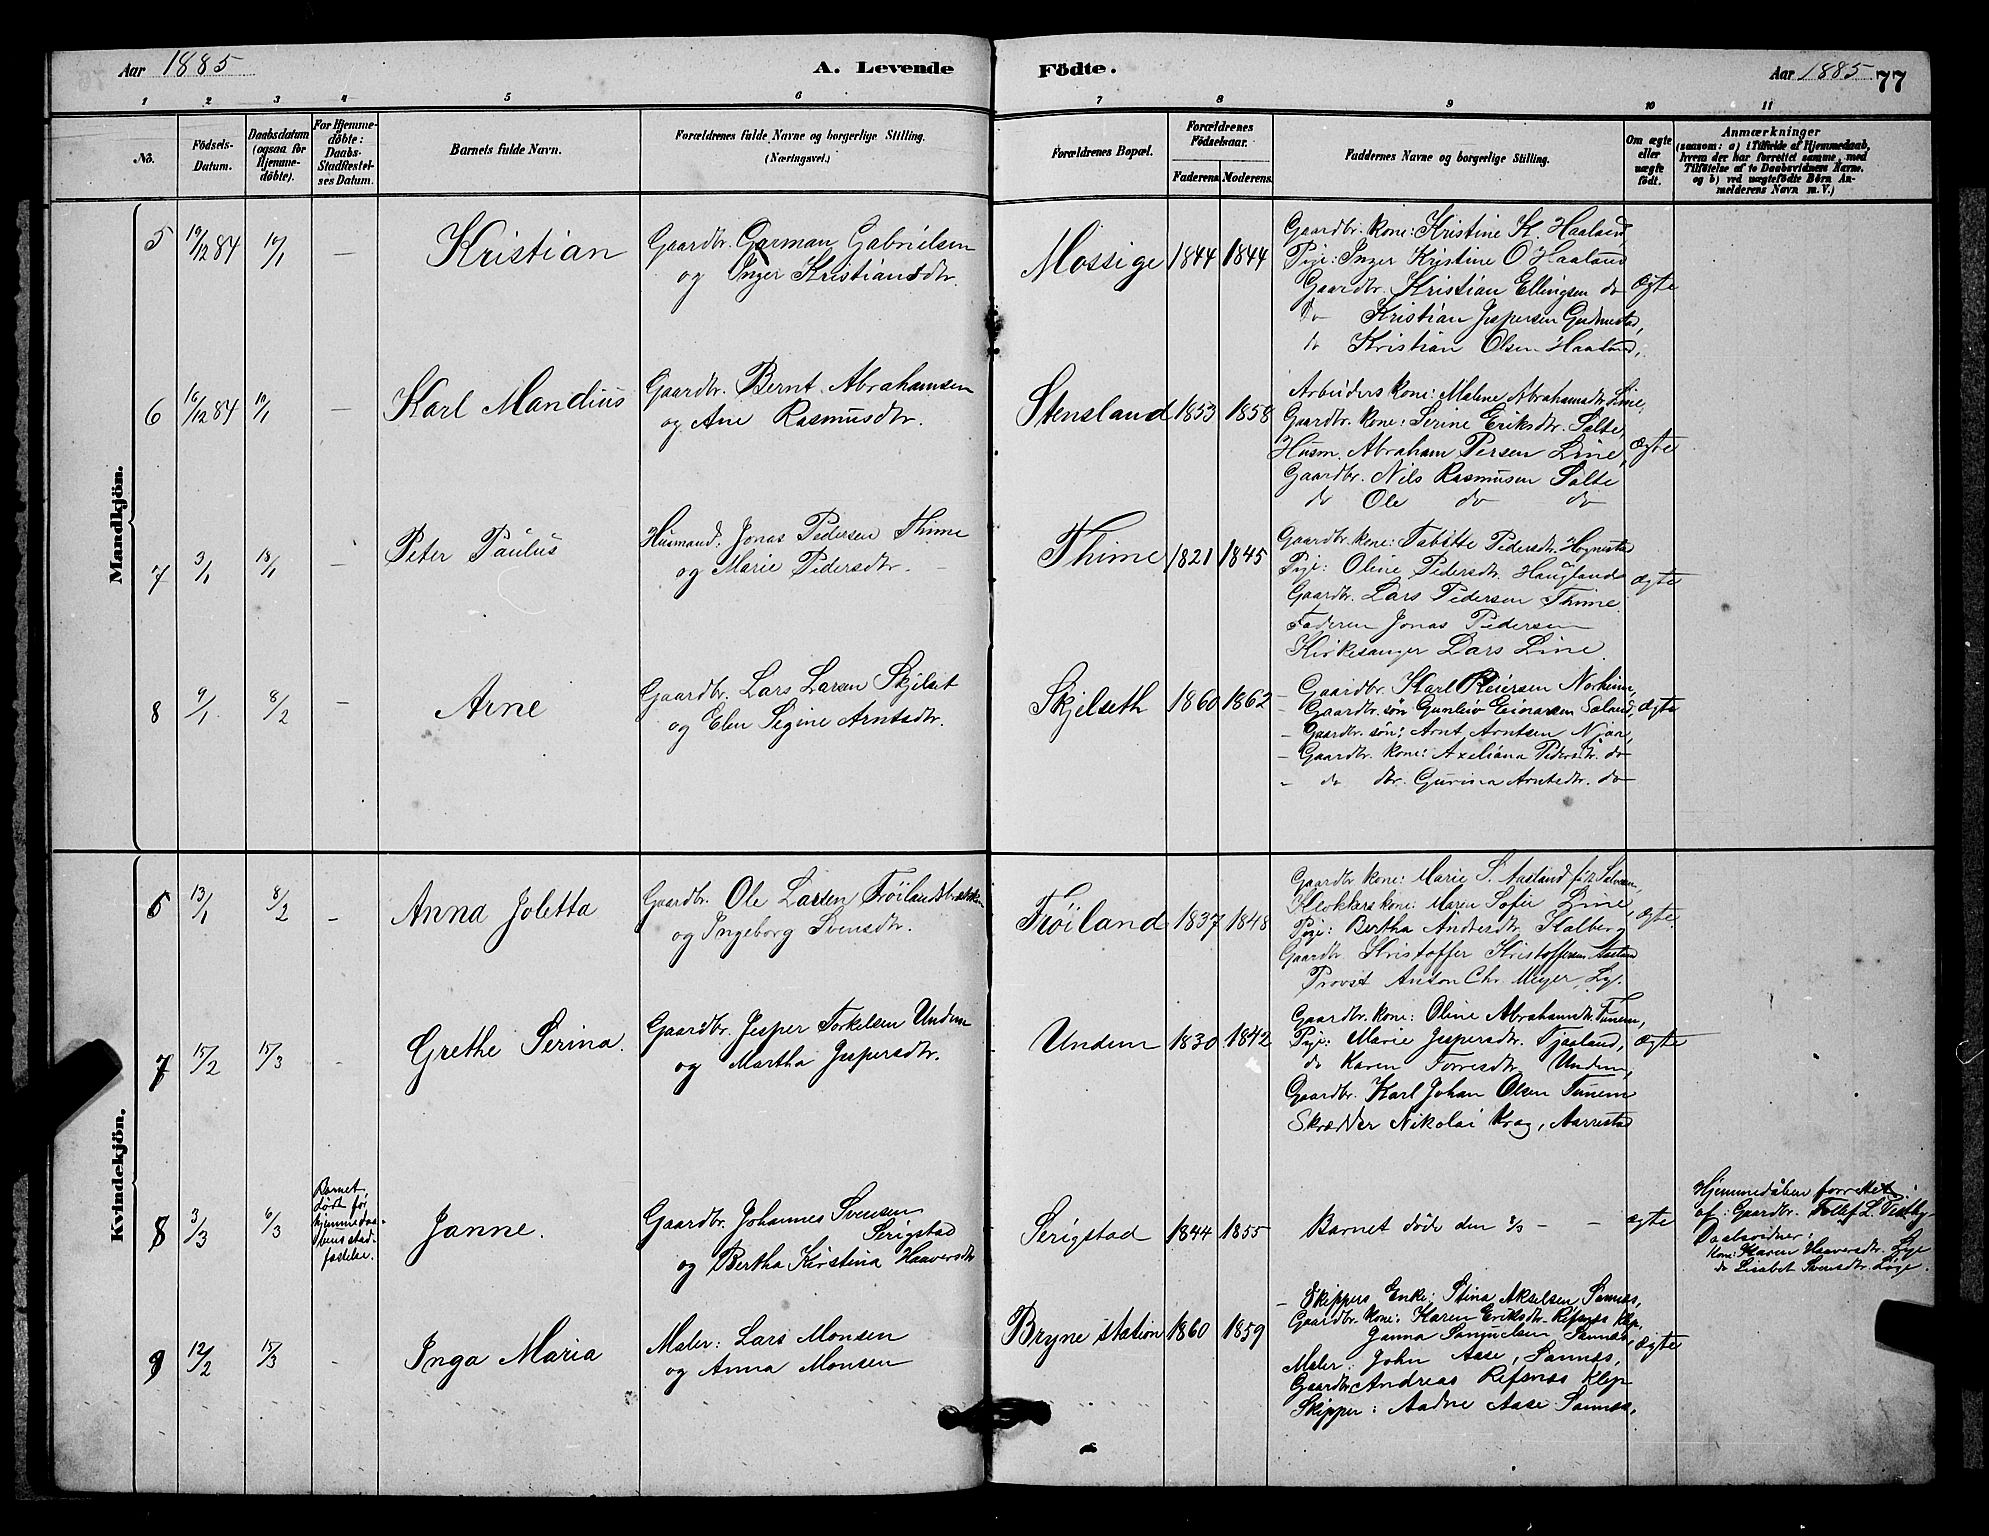 Aar 1885
A. Levende Födte.
Aar 1885 77
1 2 3 4 5 6 7 8 9 10 11
No.
Födsels-Datum.
Daabsdatum (ogsaa for Hjemme-döbte).
For Hjemme-döbte: Daabs-Stadfæstel-ses Datum.
Barnets fulde Navn.
Forældrenes fulde Navne og borgerlige Stilling. (Næringsvei.)
Forældrenes Bopæl.
Forældrenes Födselsaar.
Faderens Moderens
Faddernes Navne og borgerlige Stilling.
Om ægte eller uægte födt.
Anmærkninger
(saasom: a) i Tilfælde af Hjemmedaab,
hvem der har forrettet samme, med
Tilföielse af to Daabsvidners Navne,
og b) ved uægtefödte Börn An-
melderens Navn m. V.)
Mandkjön.
5 19/12 84 10/1 — Kristian
Gaardbr. Garman Gabrielsen
og Inger Kristiansdtr.
Mossige 1844 1844
Gaardbr. kone: Kristine K. Haaland,
Pige: Inger Kristine O. Haaland
Gaardbr. Kristian Ellingsen do
do Kristian Jespersen Gudmestad,
do Kristian Olsen Haaland,
ægte
6 16/12 84 10/1 — Karl Mandius
Gaardbr. Bernt Abrahamsen
og Ane Rasmusdtr.
Stensland 1853 1858
Arbeiders kone: Malene Abrahamsdtr. Line,
Gaardbr. kone: Serine Eriksdtr. Salte,
Husm. Abraham Persen Line,
Gaardbr. Nils Rasmusen Salte
do Ole do do
ægte
7 3/1 18/1 — Peter Paulus
Husmand. Jonas Pedersen Thime
og Marie Pedersdtr. —
Thime 1821 1845
Gaardbr. kone: Tabitte Pedersdtr.
Pige: Oline Pedersdtr. Haugland
Gaardbr. Lars Pedersen Thime.
Faderen Jonas Pedersen
Kirkesanger Lars Line.
ægte
8 9/1 8/2 — Arne
Gaardbr. Lars Larsen Skjelset
og Elen Segine Arntsdtr.
Skjelseth 1860 1862
— Gaardbr. Karl Reiersen Norheim,
— Gaardbr. søn Gunleiv Einarsen Sæland,
— Gaardbr. søn: Arnt Arntsen Njaa,
— Gaardbr. kone: Axeliana Pedersdtr. do
— do dtr. Gurina Arntsdtr. do
ægte
Kvindekjön.
6 13/1 8/2 — Anna Joletta
Gaardbr. Ole Larsen Tröilandsbakken
og Ingeborg Svensdtr.
Tröiland 1837 1848
Gaardbr kone: Marie S. Austand
Klokkers kone: Maren Sofie Line,
Pige: Bertha Andersdtr. Kalberg
Gaardbr. Kristoffer Kristoffersen
Provst Anton Chr. Meyer, Ly.
ægte
7 15/2 15/3 — Grethe Serina.
Gaardbr. Jesper Torkelsen Undem
og Martha Jespersdtr.
Undem 1830 1842
Gaardbr. kone: Oline Abrahamsdtr. Tunem,
Pige: Marie Jespersdtr. Tjaaland,
do Karen Torresdtr. Undem,
Gaardbr. Karl Johan Olsen Tunem
Skrædder Nikolai Krag, Aarrestad
ægte
8 3/3 6/3
Barnet
døde før
hjemmedaa-
bens stad-
festelse.
Janne.
Gaardbr. Johannes Svensen
Serigstad
og Bertha Kirstina Haaversdtr
Serigstad 1844 1855
Barnet døde den — —
ægte
Hjemmedåben forrettet
af: Gaardbr.
Daabsvidner:
kone: Karen Haaversdtr. Lye
do Lisabet Svensdtr. Lye.
9 12/2 15/3 — Inga Maria
Maler: Lars Monsen
og Anna Monsen
Bryne station 1860 1859
— Skippers Enke: Stina Akselsen Sannæs,
Gaardbr. kone: Karen Eriksdtr. Refsnæs Klep,
Janna Samuelsen Sannæs,
Maler: John Aase, Sannæs,
Gaardbr. Andreas Refsnæs Klep
Skipper: Aadne Aase Sannæs,
ægte